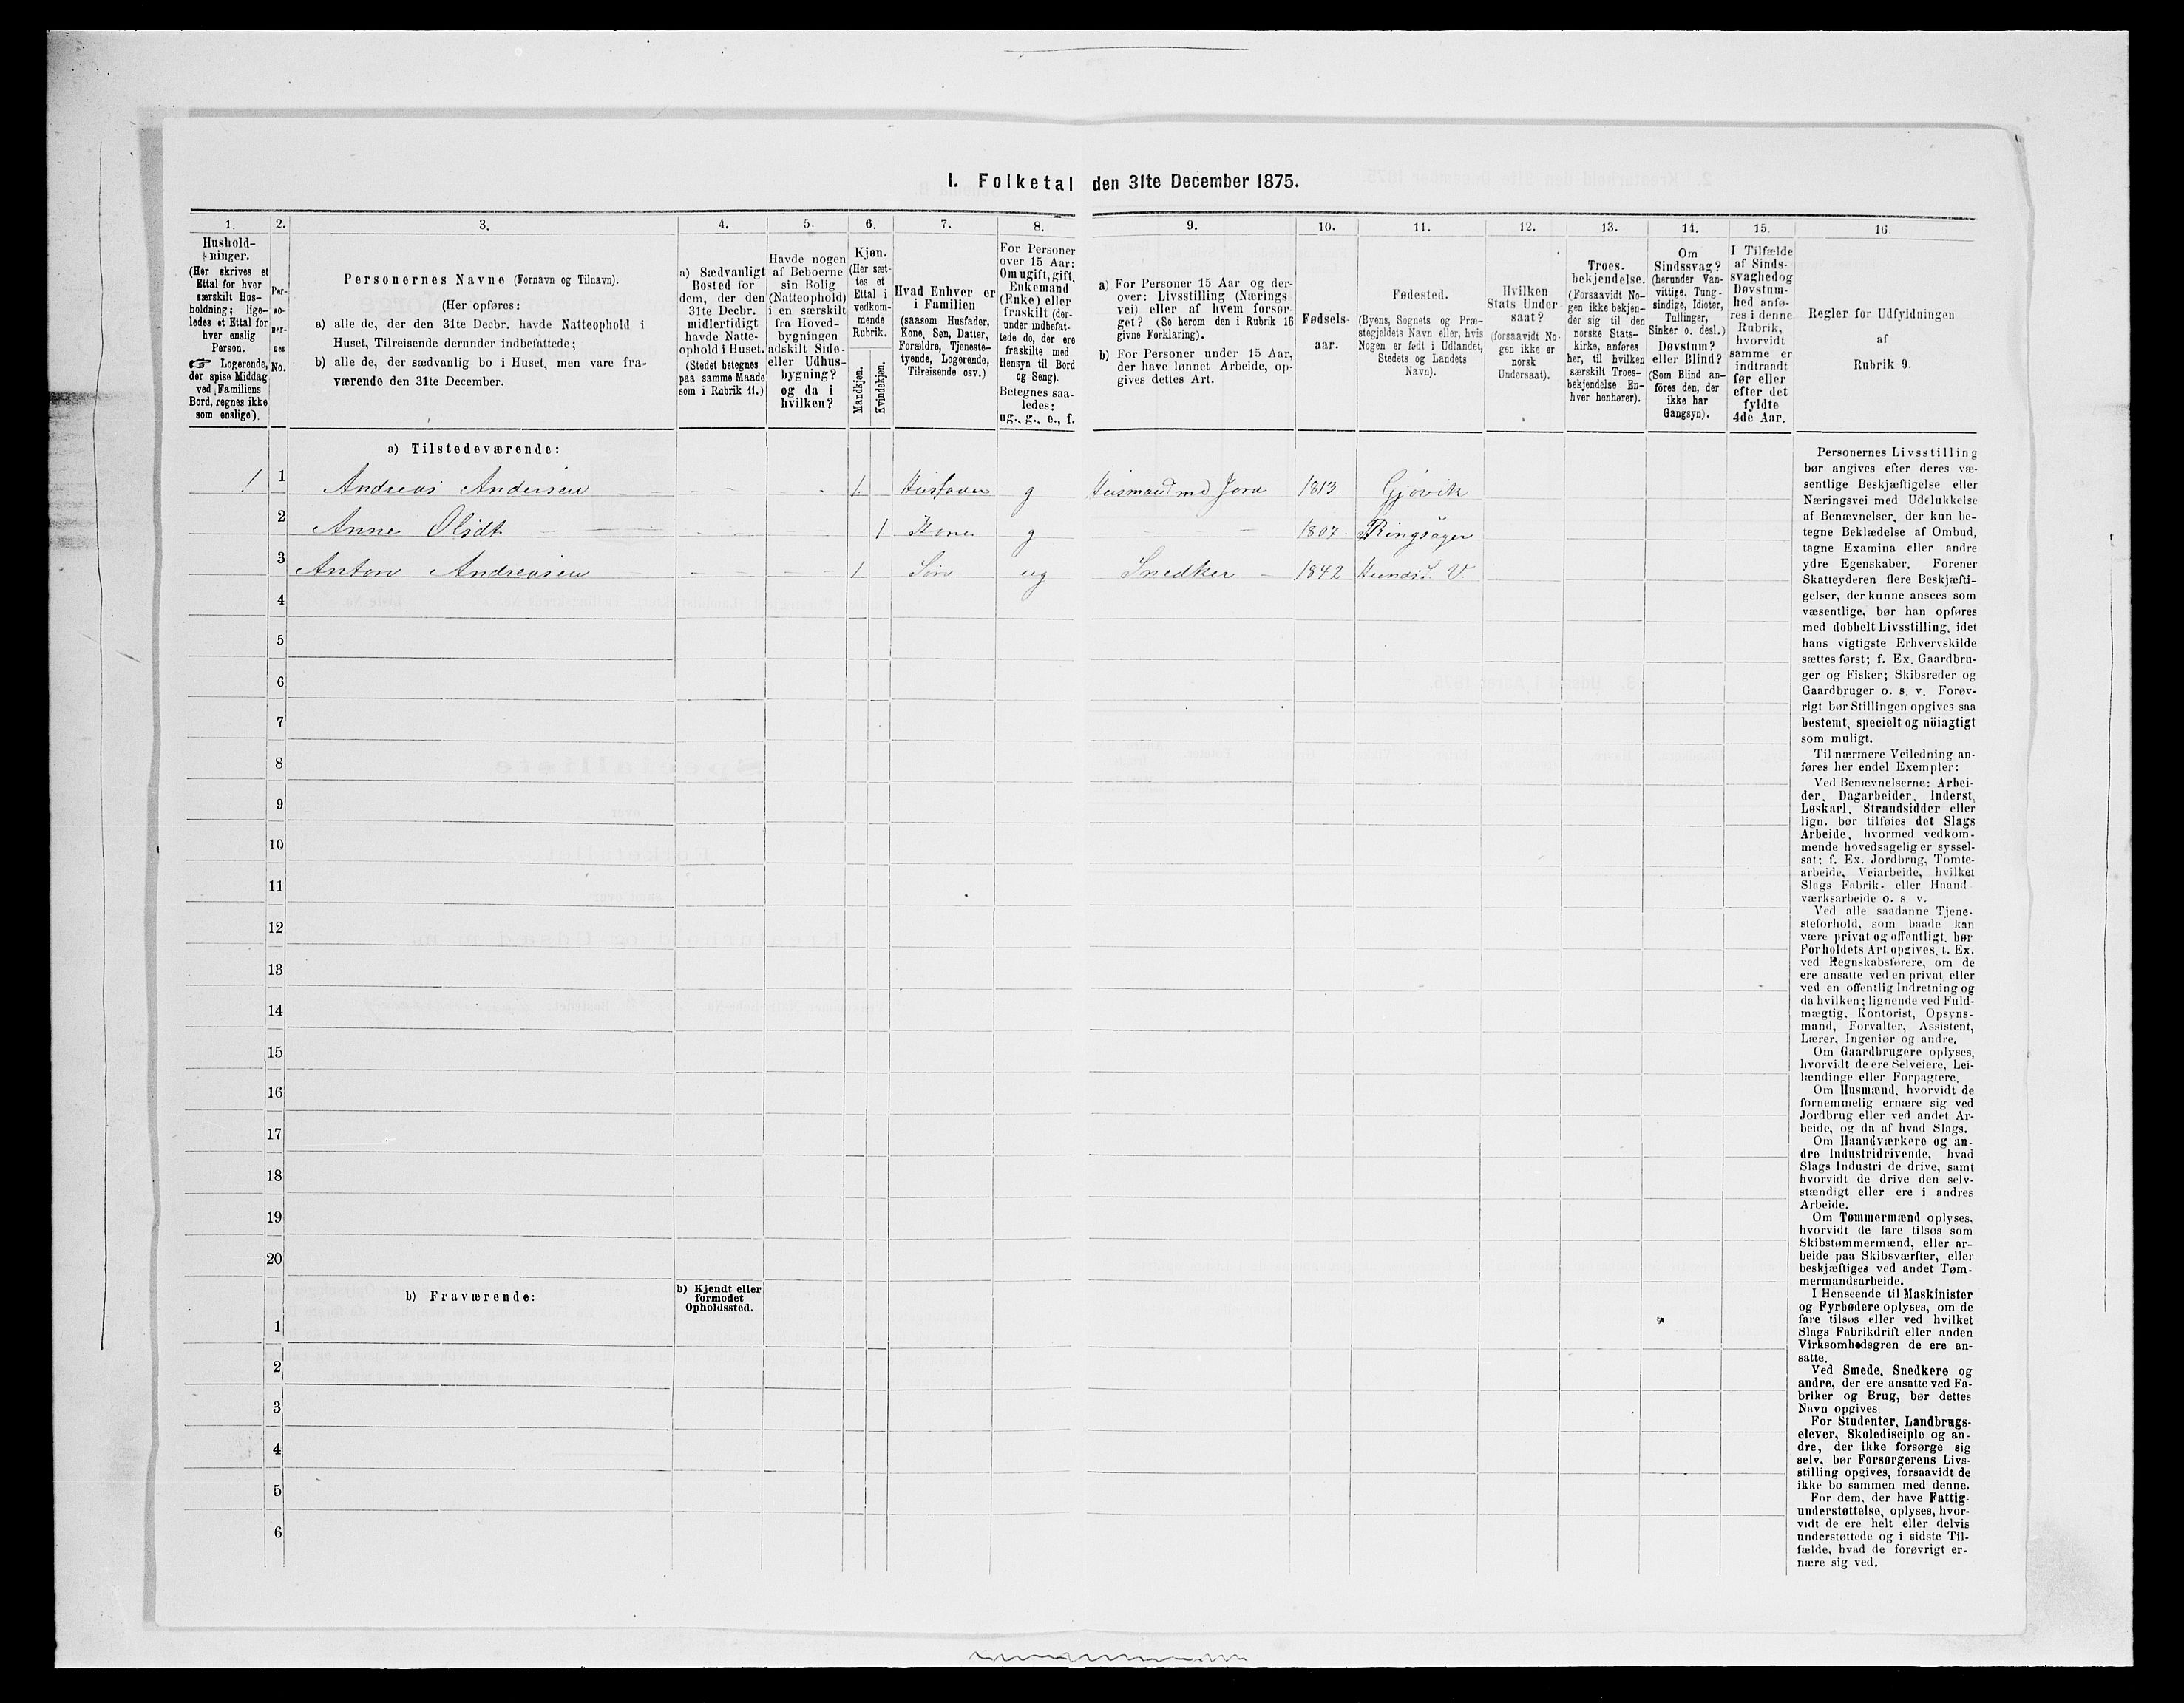 I. Folketal den 31te December 1875.
1.
Hushold-
ninger.
(Her skrives et
Ettal for hver
særskilt Hus-
holdning; lige-
ledes et Ettal for
hver enslig
Person.
☞ Logerende,
der spise Middag
ved Familiens
Bord, regnes ikke
som enslige).
2.
Per-
so-
ner-
nes
No.
3.
Personernes Navne (Fornavn og Tilnavn).
(Her opføres:
a) alle de, der den 31te Decbr. havde Natteophold i
Huset, Tilreisende derunder indbefattede;
b) alle de, der sædvanlig bo i Huset, men vare fra-
værende den 31te December.
4.
a) Sædvanligt
Bosted for
dem, der den
31te Decbr.
midlertidigt
havde Natte-
ophold i Huset.
(Stedet betegnes
paa samme Maade
som i Rubrik 11.)
5.
Havde nogen
af Beboerne
sin Bolig
(Natteophold)
i en særskilt
fra Hoved-
bygningen
adskilt Side-
eller Udhus-
bygning?
og da i
hvilken?
6.
Kjøn.
(Her sæt-
tes et
Ettal i
vedkom-
mende
Rubrik.
Mandkjøn.
Kvindekjøn.
7.
Hvad Enhver er
i Familien
(saasom Husfader,
Kone, Søn, Datter,
Forældre, Tjeneste-
tyende, Logerende,
Tilreisende osv.)
8.
For Personer
over 15 Aar:
Om ugift, gift,
Enkemand
(Enke) eller
fraskilt (der-
under indbefat-
tede de, der ere
fraskilte med
Hensyn til Bord
og Seng).
Betegnes saa-
ledes:
ug., g., e., f.
9.
a) For Personer 15 Aar og der-
over: Livsstilling (Nærings-
vei) eller af hvem forsør-
get? (Se herom den i Rubrik 16
givne Forklaring).
b) For Personer under 15 Aar,
der have lønnet Arbeide, op-
gives dettes Art.
10.
Fødsels-
aar.
11.
Fødested.
(Byens, Sognets og Præ-
stegjeldets Navn eller, hvis
Nogen er født i Udlandet,
Stedets og Landets
Navn).
12.
Hvilken
Stats Under-
saat?
(forsaavidt No-
gen ikke er
norsk
Undersaat).
13.
Troes-
bekjendelse.
(Forsaavidt No-
gen ikke bekjen-
der sig til den
norske Stats-
kirke, anføres
her, til hvilken
særskilt Troes-
bekjendelse En-
hver henhører).
14.
Om
Sindssvag?
(herunder Van-
vittige, Tung-
sindige, Idioter,
Tullinger,
Sinker o. desl.)
Døvstum?
eller Blind?
(Som Blind an-
føres den, der
ikke har
Gangsyn).
15.
I Tilfælde
af Sinds-
svaghed og
Døvstum-
hed anfø-
res i denne
Rubrik,
hvorvidt
samme er
indtraadt
før eller
efter det
fyldte
4de Aar.
16.
Regler for Udfyldningen
af
Rubrik 9.
a) Tilstedeværende:
1 1 Andreas Andersen 1. Husfader g Husmand md Jord 1813. Gjøvik
2 Anne Olsdt. 1 Kone g 1807. Ringsager
3 Anton Andreasen 1 Søn ug Snedker 1842 V.
4
5
6
7
8
9
10
11
12
13
14
15
16
17
18
19
20
b) Fraværende:
b) Kjendt eller
formodet
Opholdssted.
1
2
3
4
5
6
Personernes Livsstilling
bør angives efter deres væ-
sentlige Beskjæftigelse eller
Næringsvei med Udelukkelse
af Benævnelser, der kun be-
tegne Beklædelse af Ombud,
tagne Examina eller andre
ydre Egenskaber. Forener
Skatteyderen flere Beskjæfti-
gelser, der kunne ansees som
væsentlige, bør han opføres
med dobbelt Livsstilling, idet
hans vigtigste Erhvervskilde
sættes først; f. Ex. Gaardbru-
ger og Fisker; Skibsreder og
Gaardbruger o. s. v. Forøv-
rigt bør Stillingen opgives saa
bestemt, specielt og nöiagtigt
som muligt.
Til nærmere Veiledning an-
føres her endel Exempler:
Ved Benævnelserne: Arbei-
der, Dagarbeider, Inderst,
Løskarl, Strandsidder eller
lign. bør tilføies det Slags
Arbeide, hvormed vedkom-
mende hovedsagelig er syssel-
sat; f. Ex. Jordbrug, Tomte-
arbeide, Veiarbeide, hvilket
Slags Fabrik- eller Haand-
værksarbeide o. s. v.
Ved alle saadanne Tjene-
steforhold, som baade kan
være privat og offentligt, bør
Forholdets Art opgives, t. Ex.
ved Regnskabsførere, om de
ere ansatte ved en privat eller
ved en offentlig Indretning og
da hvilken; lignende ved Fuld-
mægtig, Kontorist, Opsyns-
mand, Forvalter, Assistent,
Lærer, Ingeniør og andre.
Om Gaardbrugere oplyses,
hvorvidt de ere Selveiere, Lei-
lændinge eller Forpagtere.
Om Husmænd, hvorvidt de
fornemmelig ernære sig ved
Jordbrug eller ved andet Ar-
beide, og da af hvad Slags.
Om Haandværkere og an-
dre Industridrivende, hvad
Slags Industri de drive, samt
hvorvidt de drive den selv-
stændigt eller ere i andres
Arbeide.
Om Tømmermænd oplyses,
hvorvidt de fare tilsøs som
Skibstømmermænd, eller ar-
beide paa Skibsværfter, eller
beskjæftiges ved andet Tøm-
mermandsarbeide.
I Henseende til Maskinister
og Fyrbødere oplyses, om de
fare tilsøs eller ved hvilket
Slags Fabrikdrift eller anden
Virksomhedsgren de ere an-
satte.
Ved Smede, Snedkere og
andre, der ere ansatte ved Fa-
briker og Brug, bør dettes
Navn opgives.
For Studenter, Landbrugs-
elever, Skoledisciple og an-
dre, der ikke forsørge sig
selv, bør Forsørgerens Livs-
stilling opgives, forsaavidt de
ikke bo sammen med denne.
For dem, der have Fattig-
understøttelse, oplyses, hvor-
vidt de ere helt eller delvis
understøttede og i sidste Til-
fælde, hvad de forøvrigt er-
nære sig ved.